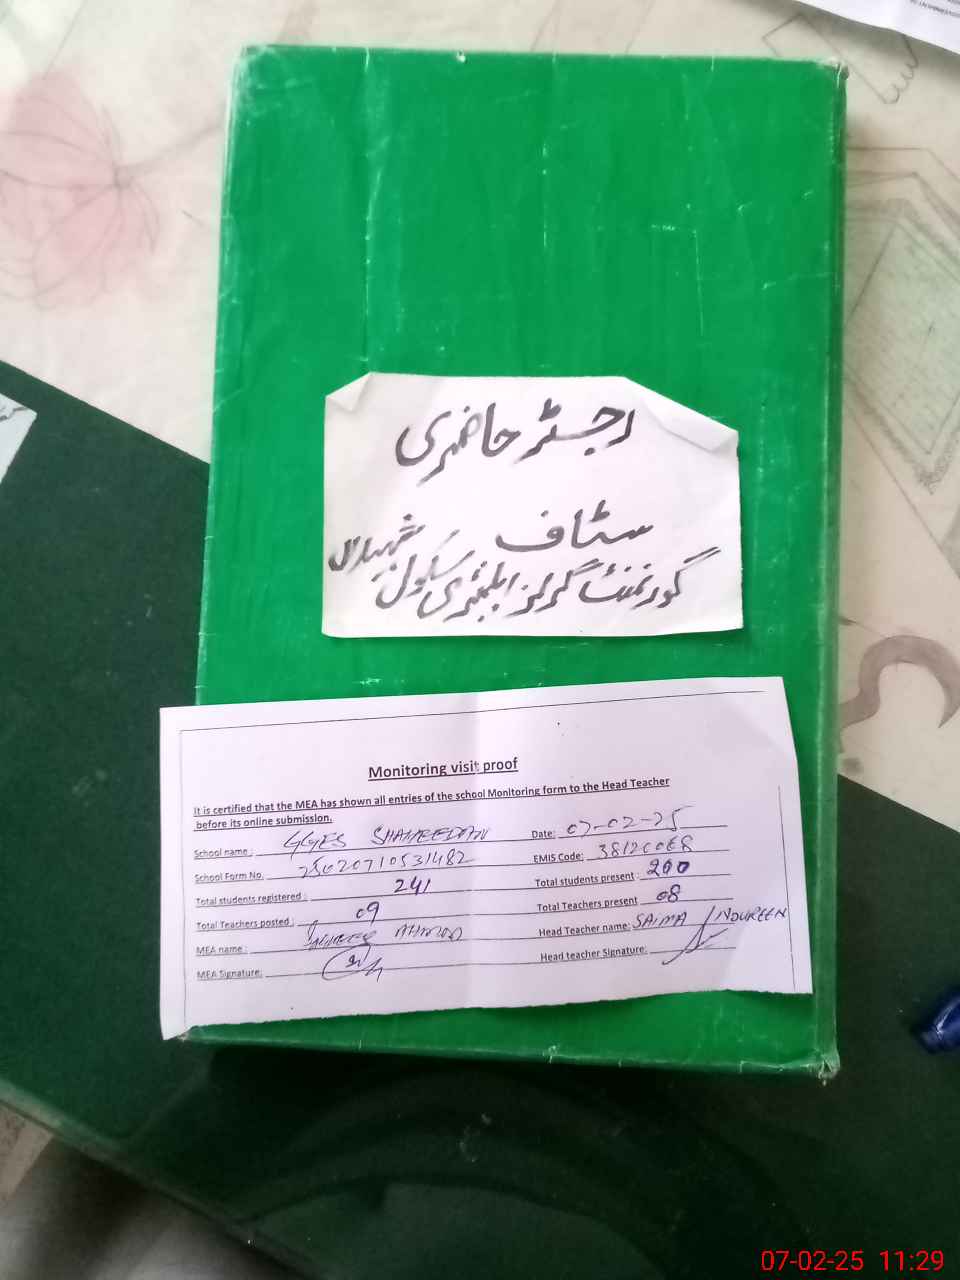 رجسٹر حاضری
سٹاف
گورنمنٹ گرلز ایلیمنٹری سکول
Monitoring visit proof
It is certified that the MEA has shown all entries of the school Monitoring form to the Head Teacher
before its online submission.
School name : GGES SHAHEEDAN Date: 07-02-25
School Form No. 25020710531482 EMIS Code: 38120068
Total students registered : 241 Total students present : 200
Total Teachers posted : 09 Total Teachers present 08
MEA name : AHMAD Head Teacher name: SAIMA NOUREEN
MEA Signature: Head teacher Signature:
07-02-25 11:29